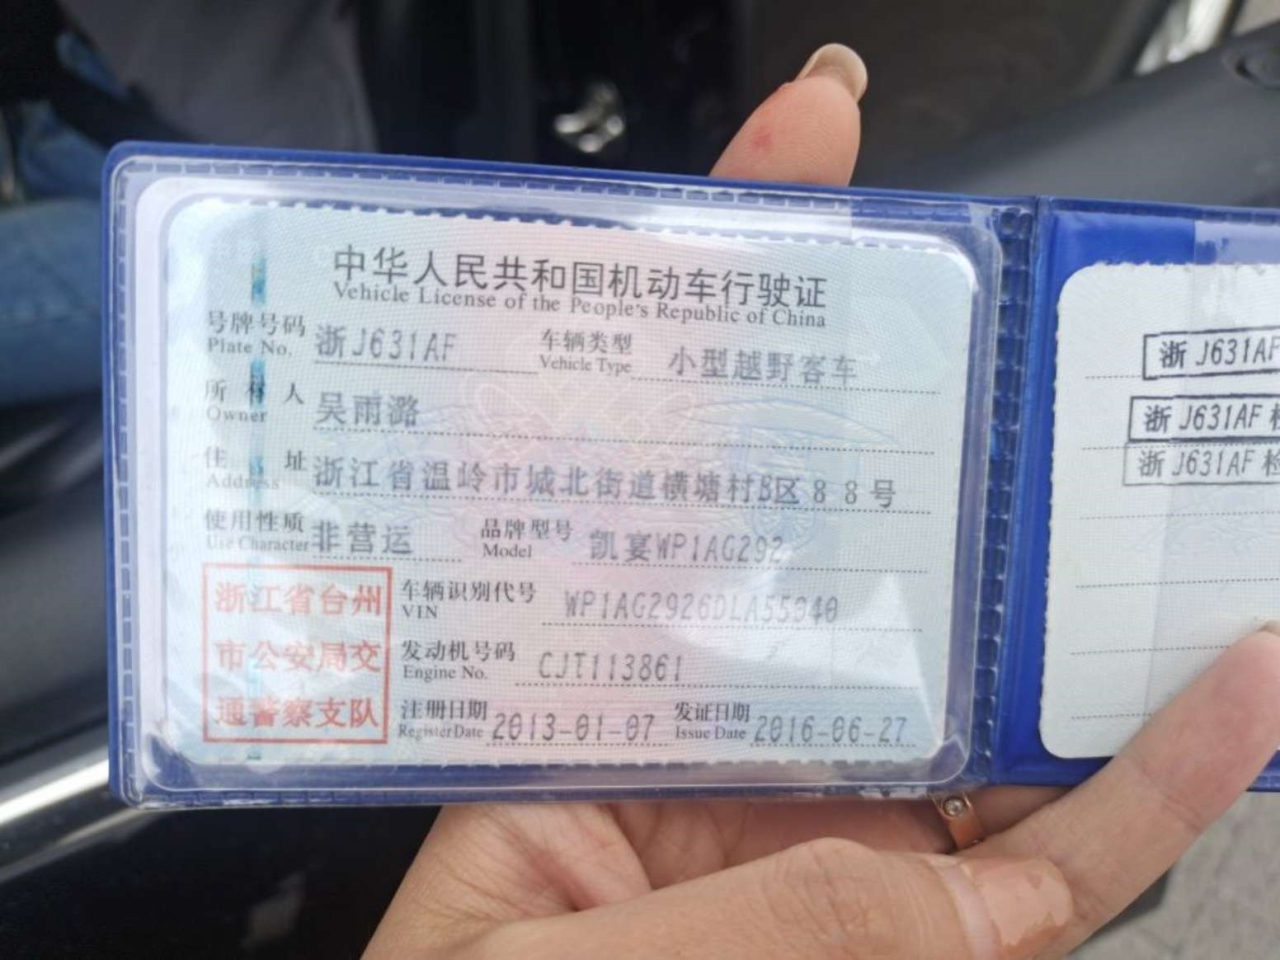 中华人民共和国机动车行驶证
Vehicle License of the People's Republic of China
号牌号码 浙J631AF 车辆类型 小型越野客车
Plate No. Vehicle Type
所有人 吴雨潞
Owner
住址 浙江省温岭市城北街道横塘村B区88号
Address
使用性质 非营运 品牌型号 凯宴WP1AG292
Use Character Model
浙江省台州
市公安局交
通警察支队
车辆识别代号 WP1AG2926DLA55940
VIN
发动机号码 CJT113861
Engine No.
注册日期 2013-01-07 发证日期 2016-06-27
Register Date Issue Date
浙J631AF
浙J631AF 检
浙J631AF 检